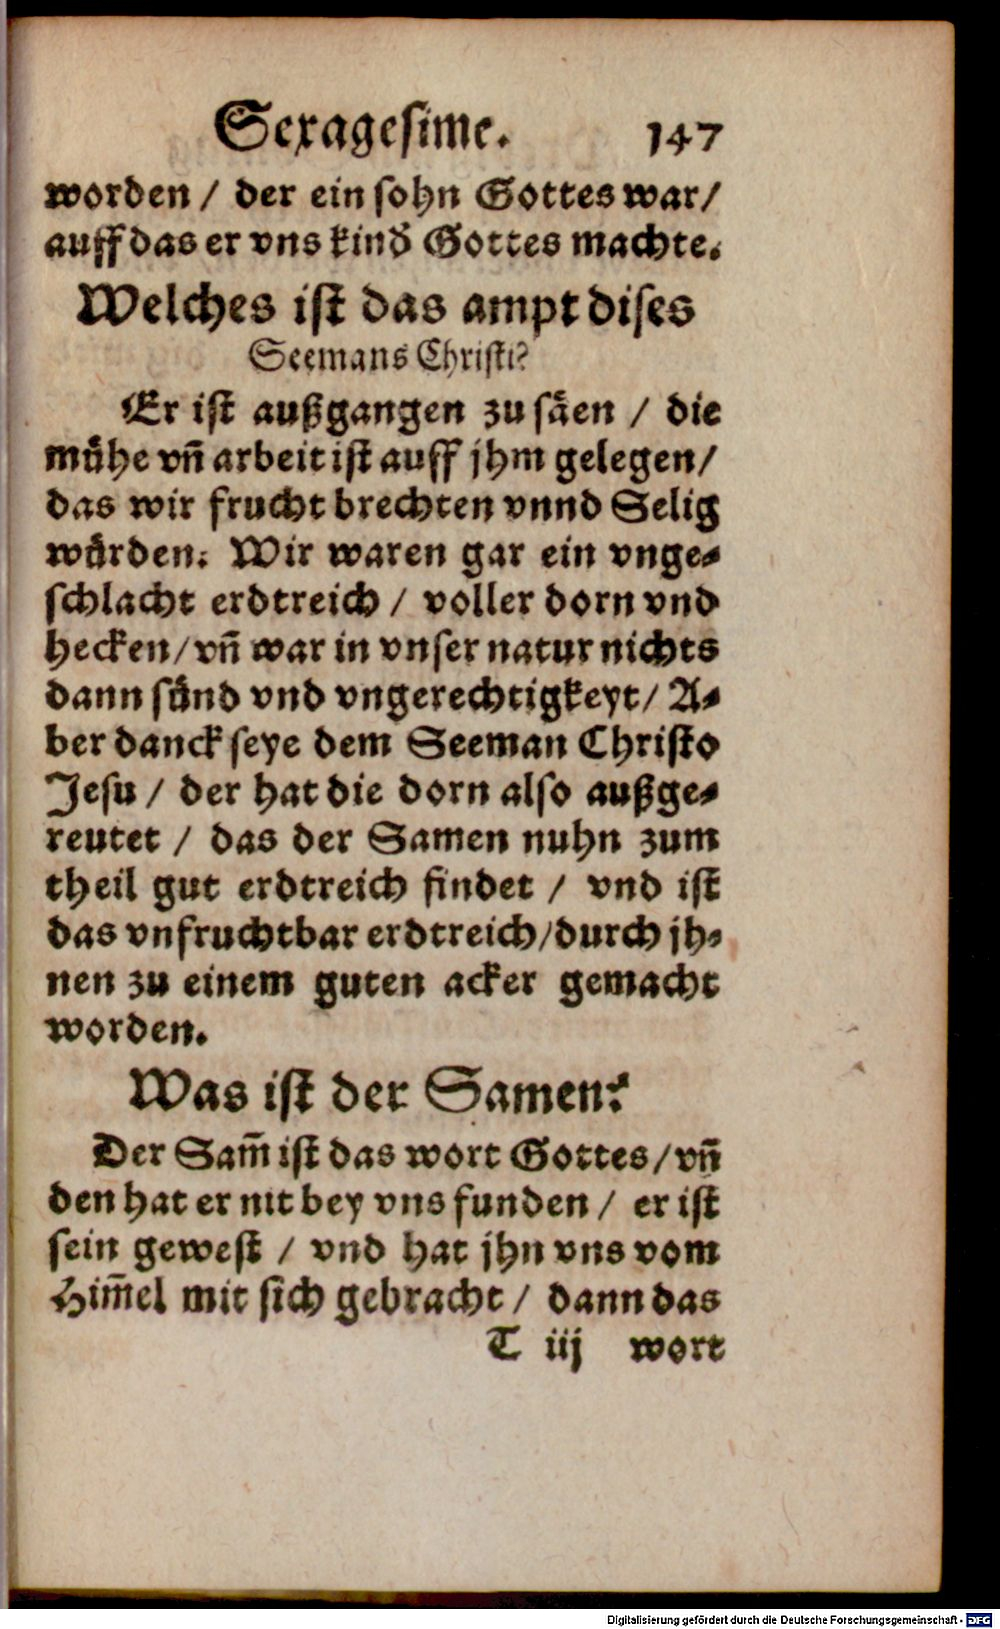 Sexagesime. 147
worden / der ein sohn Gottes war/
auff das er vns kind̛ Gottes machte.
Welches ist das ampt dises
Seemans Christi?
Er ist außgangen zu säen / die
mühe vñ arbeit ist auff jhm gelegen/
das wir frucht brechten vnnd Selig
würden. Wir waren gar ein vnge-
schlacht erdtreich / voller dorn vnd
hecken/ vñ war in vnser natur nichts
dann sünd vnd vngerechtigkeyt/ A-
ber danck seye dem Seeman Christo
Jesu / der hat die dorn also außge-
reutet / das der Samen nuhn zum
theil gut erdtreich findet / vnd ist
das vnfruchtbar erdtreich/durch jh-
nen zu einem guten acker gemacht
worden.
Was ist der Samen?
Der Sam̃ ist das wort Gottes/ vñ
den hat er nit bey vns funden / er ist
sein gewest / vnd hat jhn vns vom
Him̃el mit sich gebracht / dann das
T iij wort
Digitalisierung gefördert durch die Deutsche Forschungsgemeinschaft - DFG